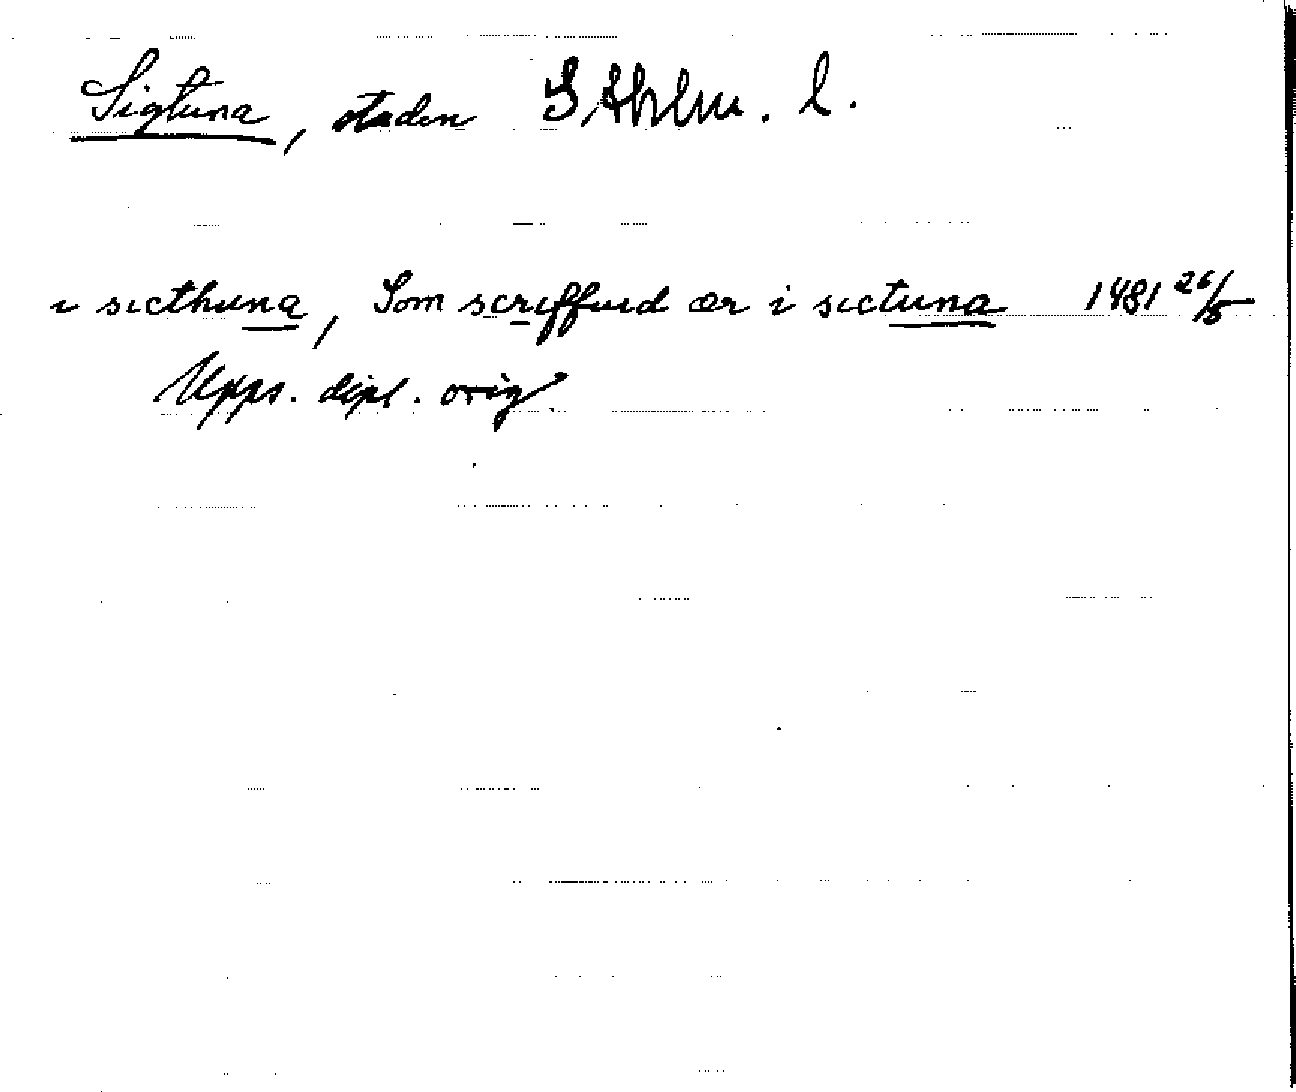 Sigtuna, staden Sthlm. l.
i sicthuna, Som scriffuid ær i sictuna 1481 26/5
Upps. dipl. orig.